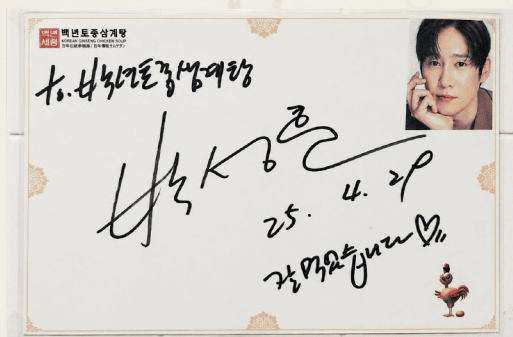 백년
세종
백년토종삼계탕
KOREAN GINSENG CHICKEN SOUP
to. 백년토종삼계탕
박성훈
25. 4. 29
잘 먹었습니다♡